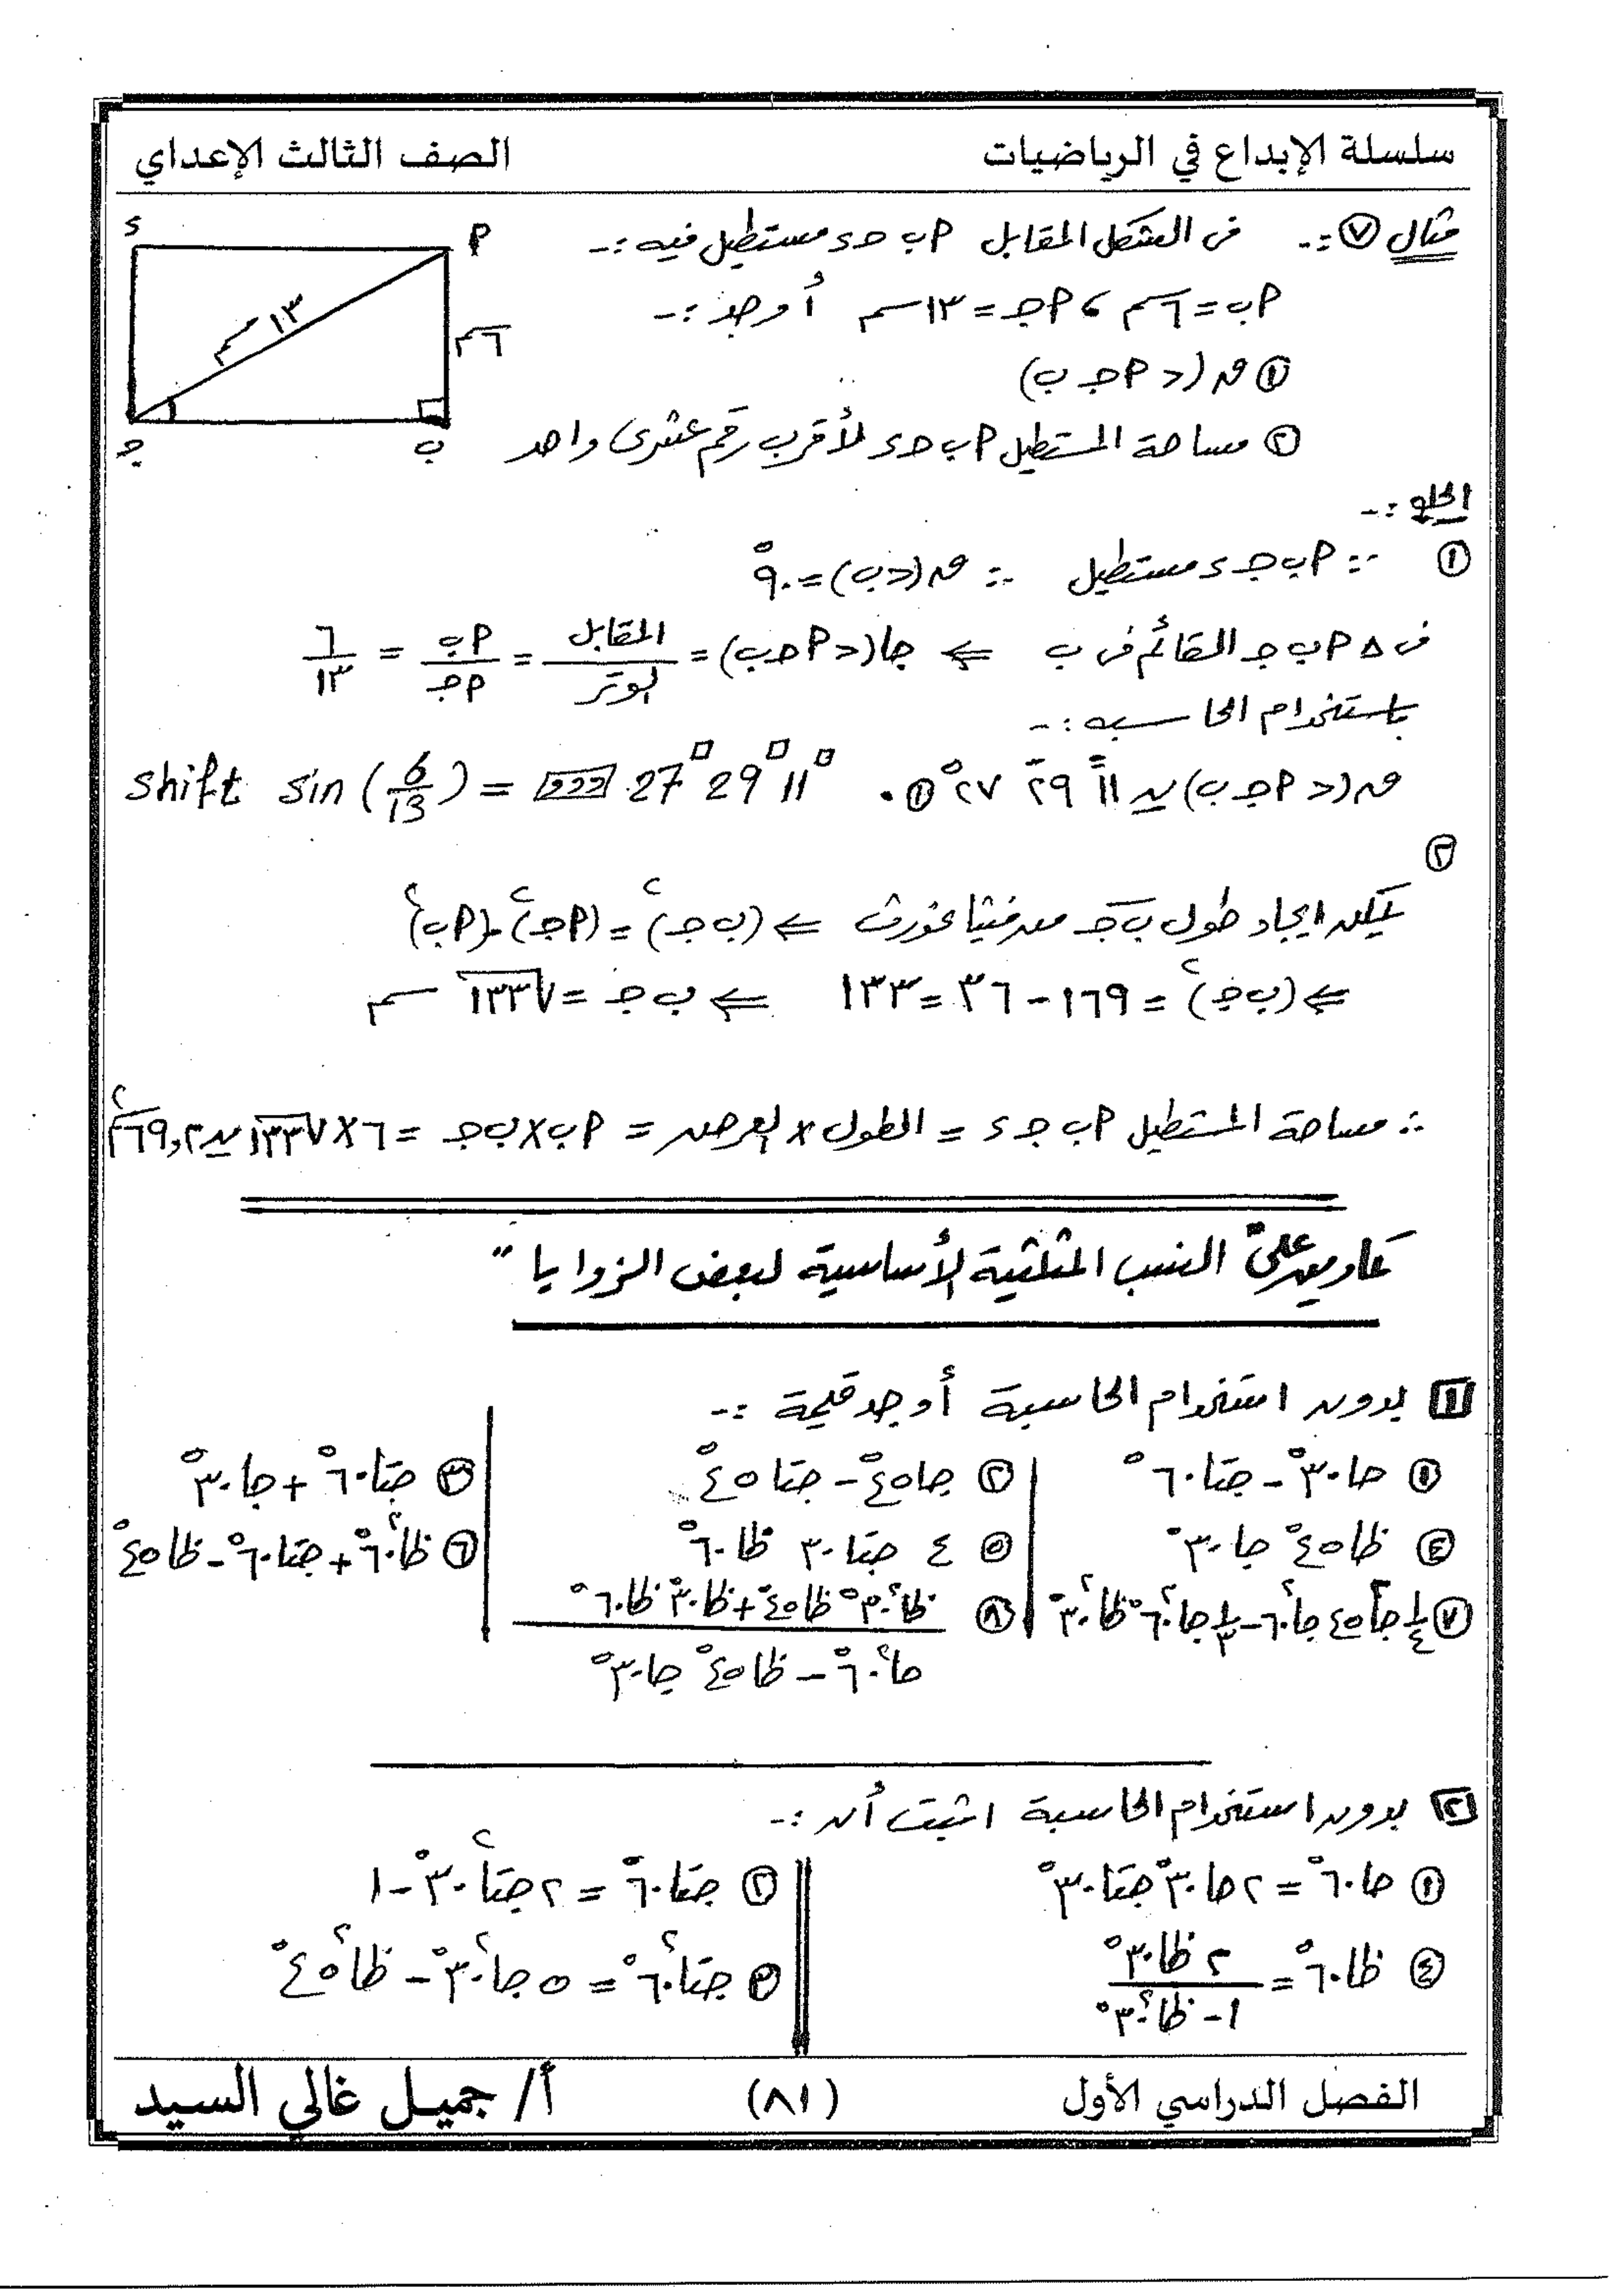 سلسلة الإبداع في الرياضيات
الصف الثالث الإعداي
مثال ⑦ :- فى الشكل المقابل أ ب حـ ء مستطيل فيه :-
أب = ٦سم ، أجـ = ١٣سم أوجد :-
① ق (د أ جـ ب)
② مساحة المستطيل أ ب حـ ء لأقرب رقم عشرى واحد
ء
أ
١٣سم
٦سم
جـ
ب
الحل :-
① ∵ أ ب جـ ء مستطيل ∴ ق (د ب) = ٩٠°
فى Δ أ ب جـ القائم فى ب ⇐ جا (د أ حـ ب) = المقابل / الوتر = أب / أجـ = ٦ / ١٣
باستخدام الحاسبه :-
ق (د أ جـ ب) ≃ ١١ً ٢٩َ ٢٧° ① .
shift sin (6/13) = °‎,,, 27° 29° 11°
②
يمكن ايجاد طول ب جـ من فيثاغورث ⇐ (ب جـ)² = (أ جـ)² - (أ ب)²
⇐ (ب جـ)² = ١٦٩ - ٣٦ = ١٣٣ ⇐ ب جـ = √١٣٣ سم
∴ مساحة المستطيل أ ب جـ ء = الطول × العرض = أ ب × ب جـ = ٦ × √١٣٣ ≃ ٦٩,٢سم²
تمارين على " النسب المثلثية الأساسية لبعض الزوايا "
[١] بدون استخدام الحاسبة أوجد قيمة :-
① حا ٣٠° - جتا ٦٠°
② جا ٤٥° - جتا ٤٥°
③ جتا ٦٠° + جا ٣٠°
④ ظا ٤٥° جا ٣٠°
⑤ ٤ جتا ٣٠ ظا ٦٠°
⑥ ظا² ٦٠° + جتا ٦٠° - ظا ٤٥°
⑦ ١/٤ جا² ٤٥ جا² ٦٠ - ١/٣ جا² ٦٠° ظا² ٣٠°
⑧ ظا² ٣٠° ظا ٤٥° + ظا ٣٠° ظا ٦٠° / حا² ٦٠° - ظا ٤٥° جا ٣٠°
[٢] بدون استخدام الحاسبة اثبت أن :-
① حا ٦٠° = ٢ حا ٣٠° جتا ٣٠°
② جتا ٦٠° = ٢ جتا² ٣٠° - ١
④ ظا ٦٠° = ٢ ظا ٣٠° / ١ - ظا² ٣٠°
③ جتا² ٦٠° = ٥ جا² ٣٠° - ظا² ٤٥°
الفصل الدراسي الأول
(٨١)
أ/ جميل غالي السيد